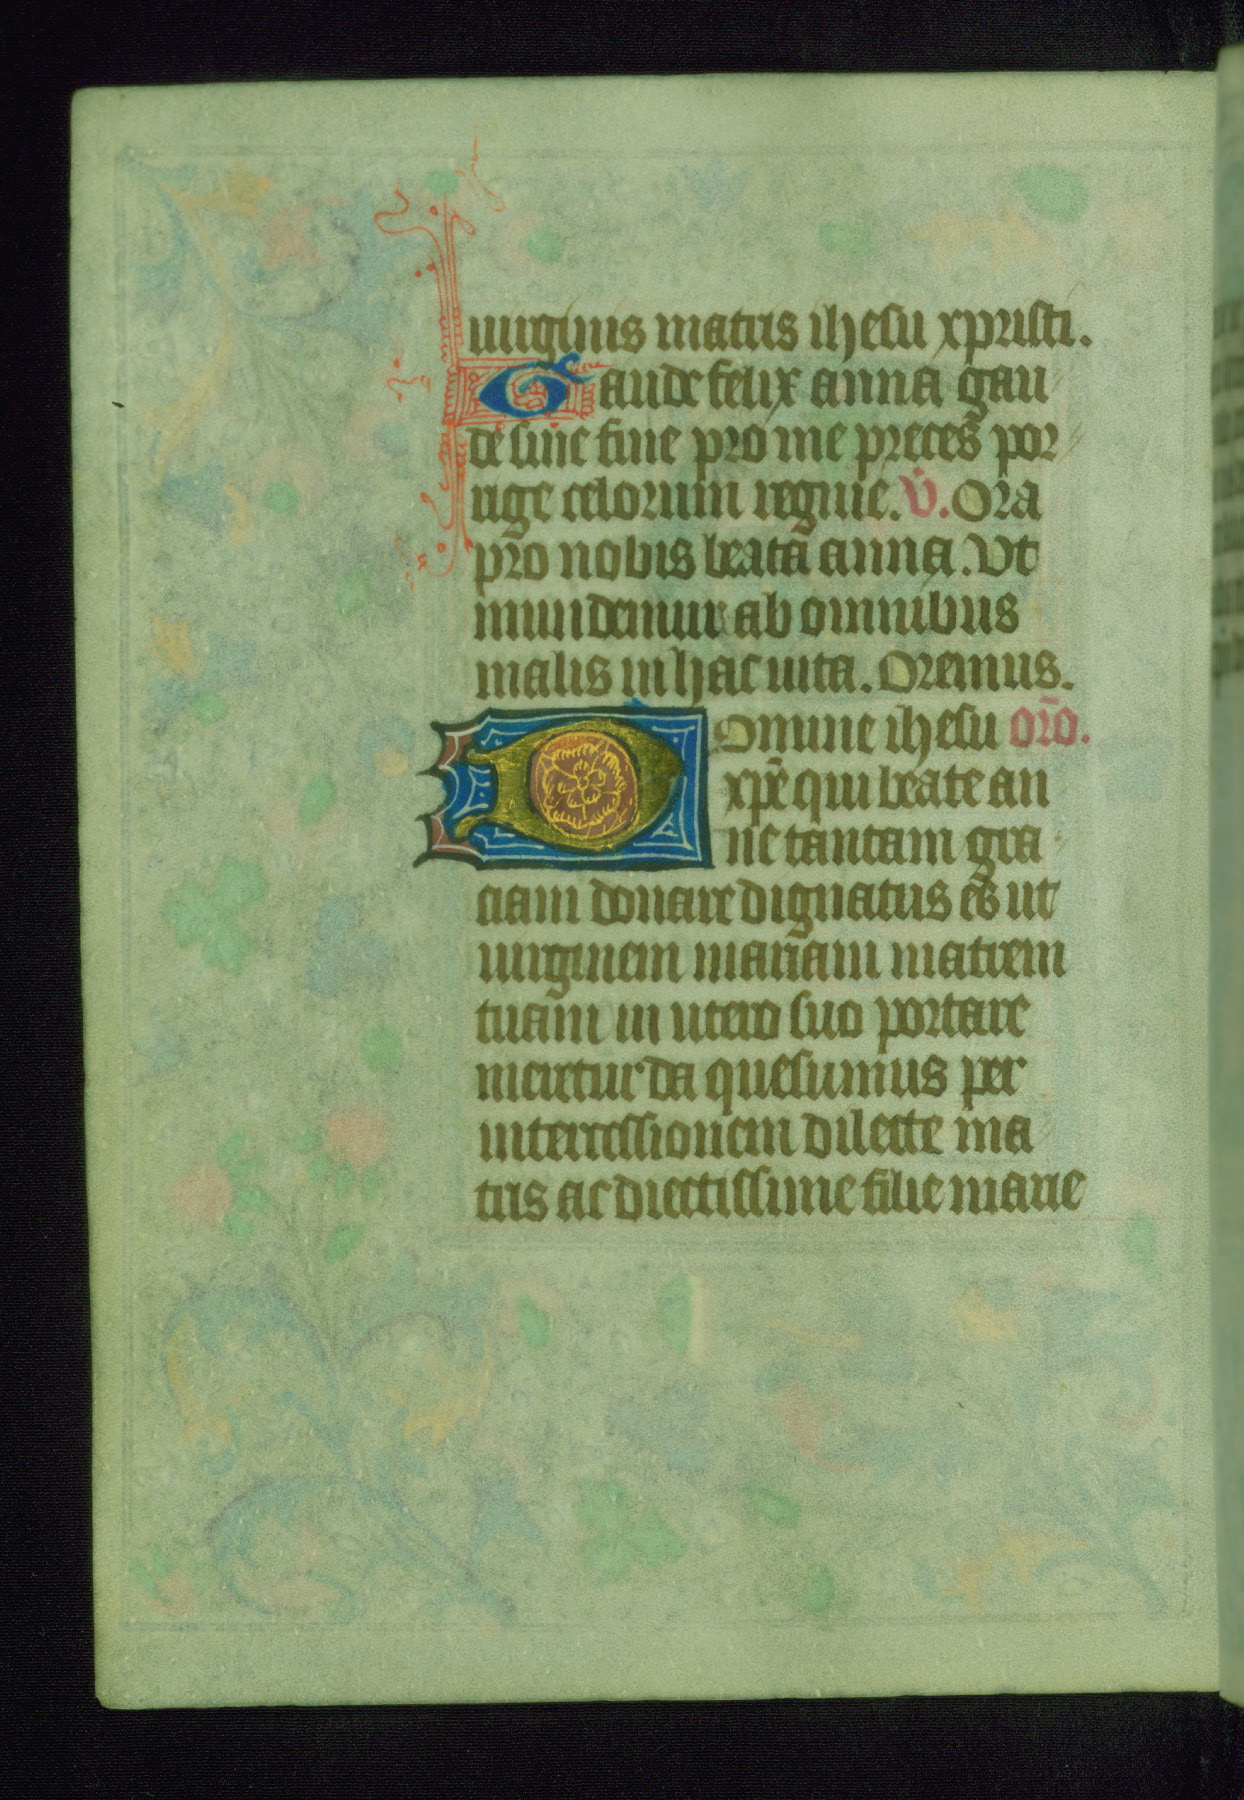 uirginis matris ihesu xpristi.
Gaude felix anna gau
de sine fine pro me preces por
rige celorum regine. V̄. Ora
pro nobis beata anna. Vt
mundemur ab omnibus
malis in hac uita. Oremus.
Domine ihesu or̄o.
xp̄e qui beate an
ne tantam gra
ciam donare dignatus es ut
uirginem mariam matrem
tuam in utero suo portare
meretur da quesumus per
intercessionem dilecte ma
tris ac diectissime filie marie